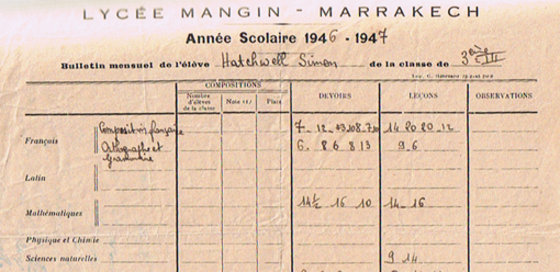 LYCÉE MANGIN - MARRAKECH
Année Scolaire 1946 - 1947
Bulletin mensuel de l'élève Hatchwell Simon de la classe de 3ème III
COMPOSITIONS
Nombre d'élèves de la classe Note Place DEVOIRS LEÇONS OBSERVATIONS
Français Composition française 7 _ 12 14 20 20 _ 12
Orthographe et Grammaire 6 _ 8 6 8 13 9 _ 6
Latin
Mathématiques 14½ _ 16 _ 10 14 _ 16
Physique et Chimie
Sciences naturelles 9 14